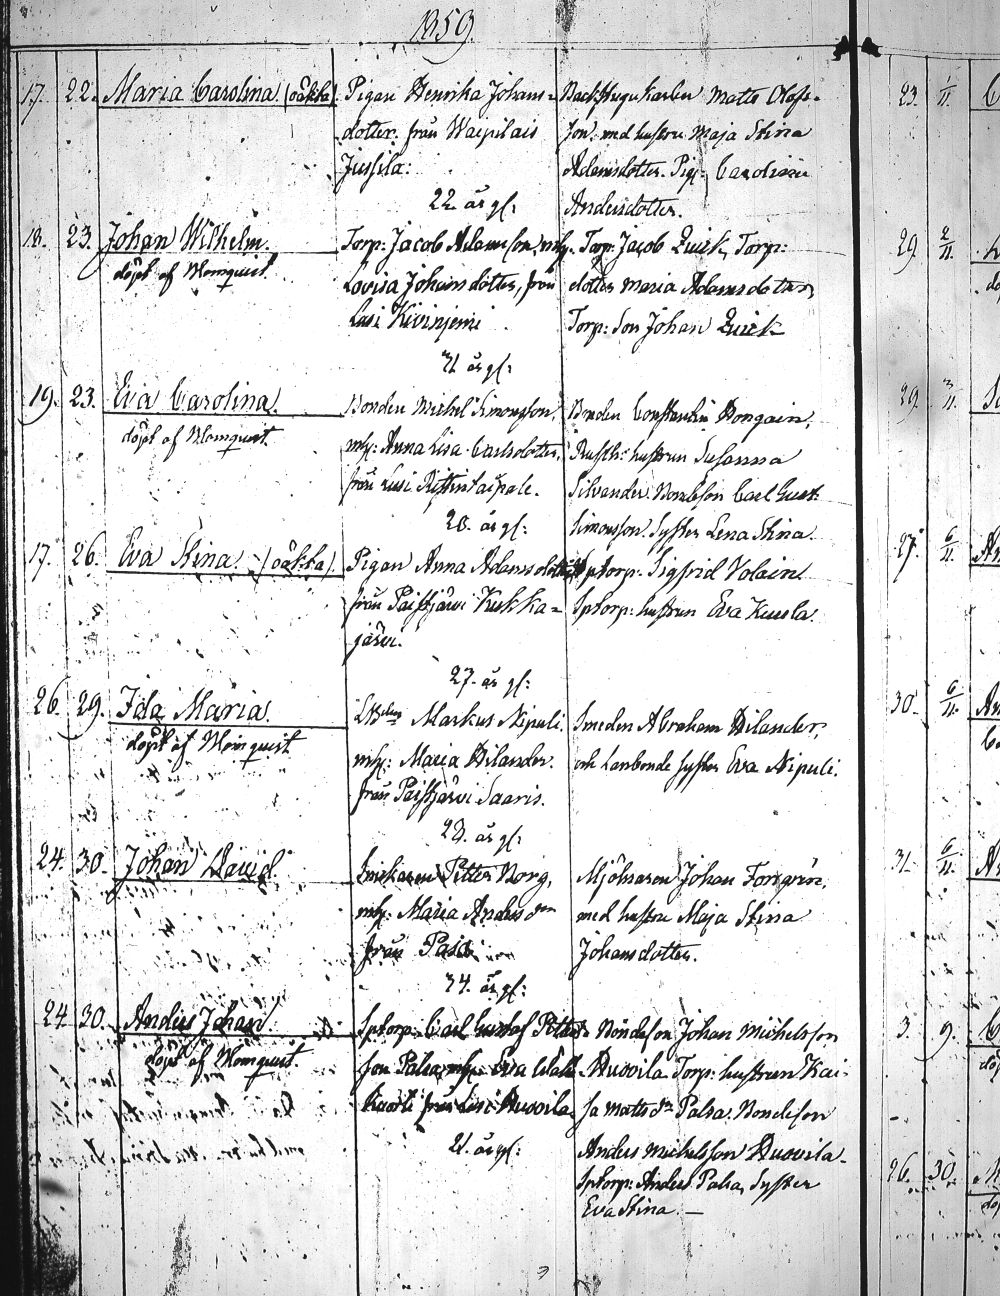 1859.
17. 22. Maria Carolina (oäkta)
Pigan Henrika Johans=
dotter från Waipilais
Jussila:
22 år gl:
Backstugukarlen Matts Olofs-
son med hustru Maja Stina
Adamsdotter. Pig: Carolina
Andersdotter.
18. 23. Johan Wilhelm.
döpt af Blomquist.
Torp: Jacob Adamsson, mh:
Lovisa Johansdotter, från
Lusi Kivinjemi
31 år gl:
Torp: Jacob Quick, Torp:
dotter Maria Adamsdotter,
Torp: Son Johan Quick
19. 23. Eva Carolina.
döpt af Blomquist.
Bonden Michel Simonsson,
mh: Anna Lisa Carlsdotter,
från Lusi Ristintaipale.
20. år gl:
Bonden Constantin Hongain,
hustrun Susanna
Silvander. Bondeson Carl Gust:
Simonsson. Syster Lena Stina.
17. 26. Eva Stina. (oäkta)
Pigan Anna Adamsdotter
från Paistjärvi Kukka=
järvi.
27. år gl:
Sptorp: Sigfrid Volain.
Sptorp: hustrun Eva Kuusla.
26. 29. Ida Maria.
döpt af Blomquist
Markus Nipuli.
mh: Maria Hilander.
från Paistjärvi Saaris.
28. år gl:
Smeden Abraham Hilander,
och landbonde syster Eva Nipuli.
24. 30. Johan David.
Petter Norg,
mh: Maria Anders dr
från Paso
34. år gl:
Mjölnaren Johan Forsgrén,
med hustru Maja Stina
Johansdotter.
24. 30. Anders Johan.
döpt af Blomquist.
Sptorp: Carl Gustaf Petters
son Palsa, mh: Eva
från Lusi Huovila
21. år gl:
Bondeson Johan Michelsson
Huovila. Torp: hustrun Kai-
sa Matts dr Palsa. Bondeson
Anders Michelsson Huovila-
Sptorp: Anders Palsa, Syster
Eva Stina. —
23. 1/11.
29. 2/11.
29. 3/11.
27. 6/11.
30. 6/11.
31. 6/11.
3. 9.
26. 30.